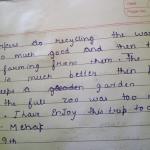 so recycling the wa
o much good and then t
farming from them. The
is much better then
eps a garden garden
the full zoo was too
I have Enjoy this trip to
Mehraf
9th